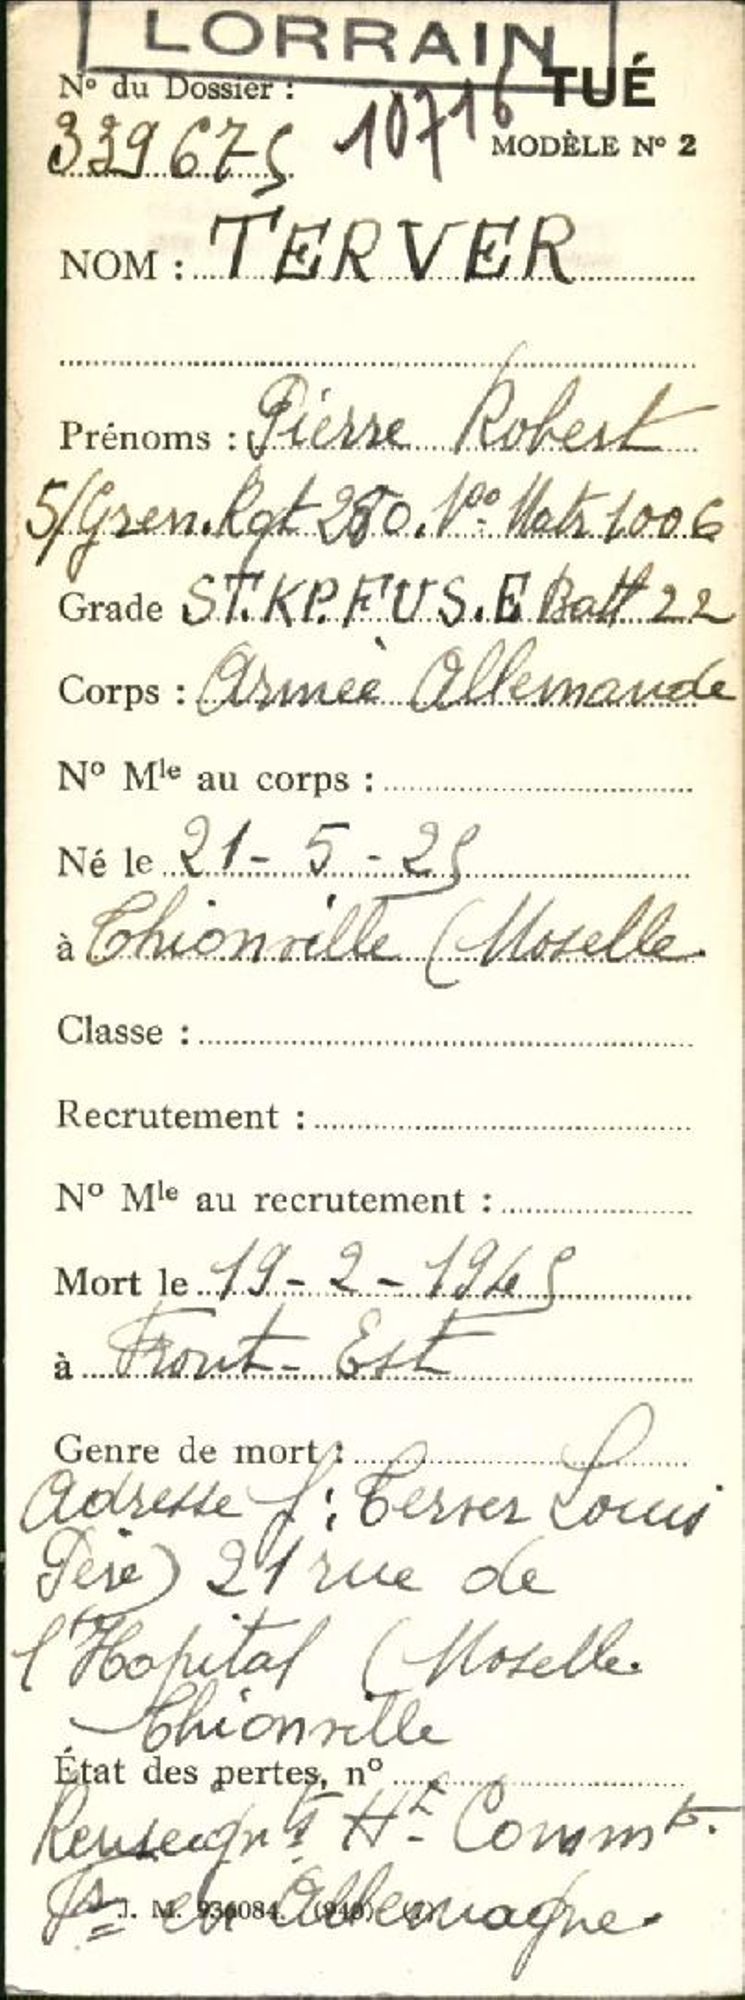 LORRAIN
TUÉ
N° du Dossier :
339675 10716
MODÈLE N° 2
NOM : TERVER
Prénoms : Pierre Robert
5/Gren. Rgt 280. Matr 1006
Grade ST.KP.FUS.E Batt 22
Corps : Armée Allemande
N° Mle au corps :
Né le 21 - 5 - 25
à Thionville (Moselle
Classe :
Recrutement :
N° Mle au recrutement :
Mort le 19 - 2 - 1945
à Front - Est
Genre de mort :
Adresse f : Terver Louis
Père) 21 rue de
l'Hopital (Moselle
Thionville
État des pertes, n°
Renseignts Ht Commt.
Fs en Allemagne.
J. M. 936084. (940)